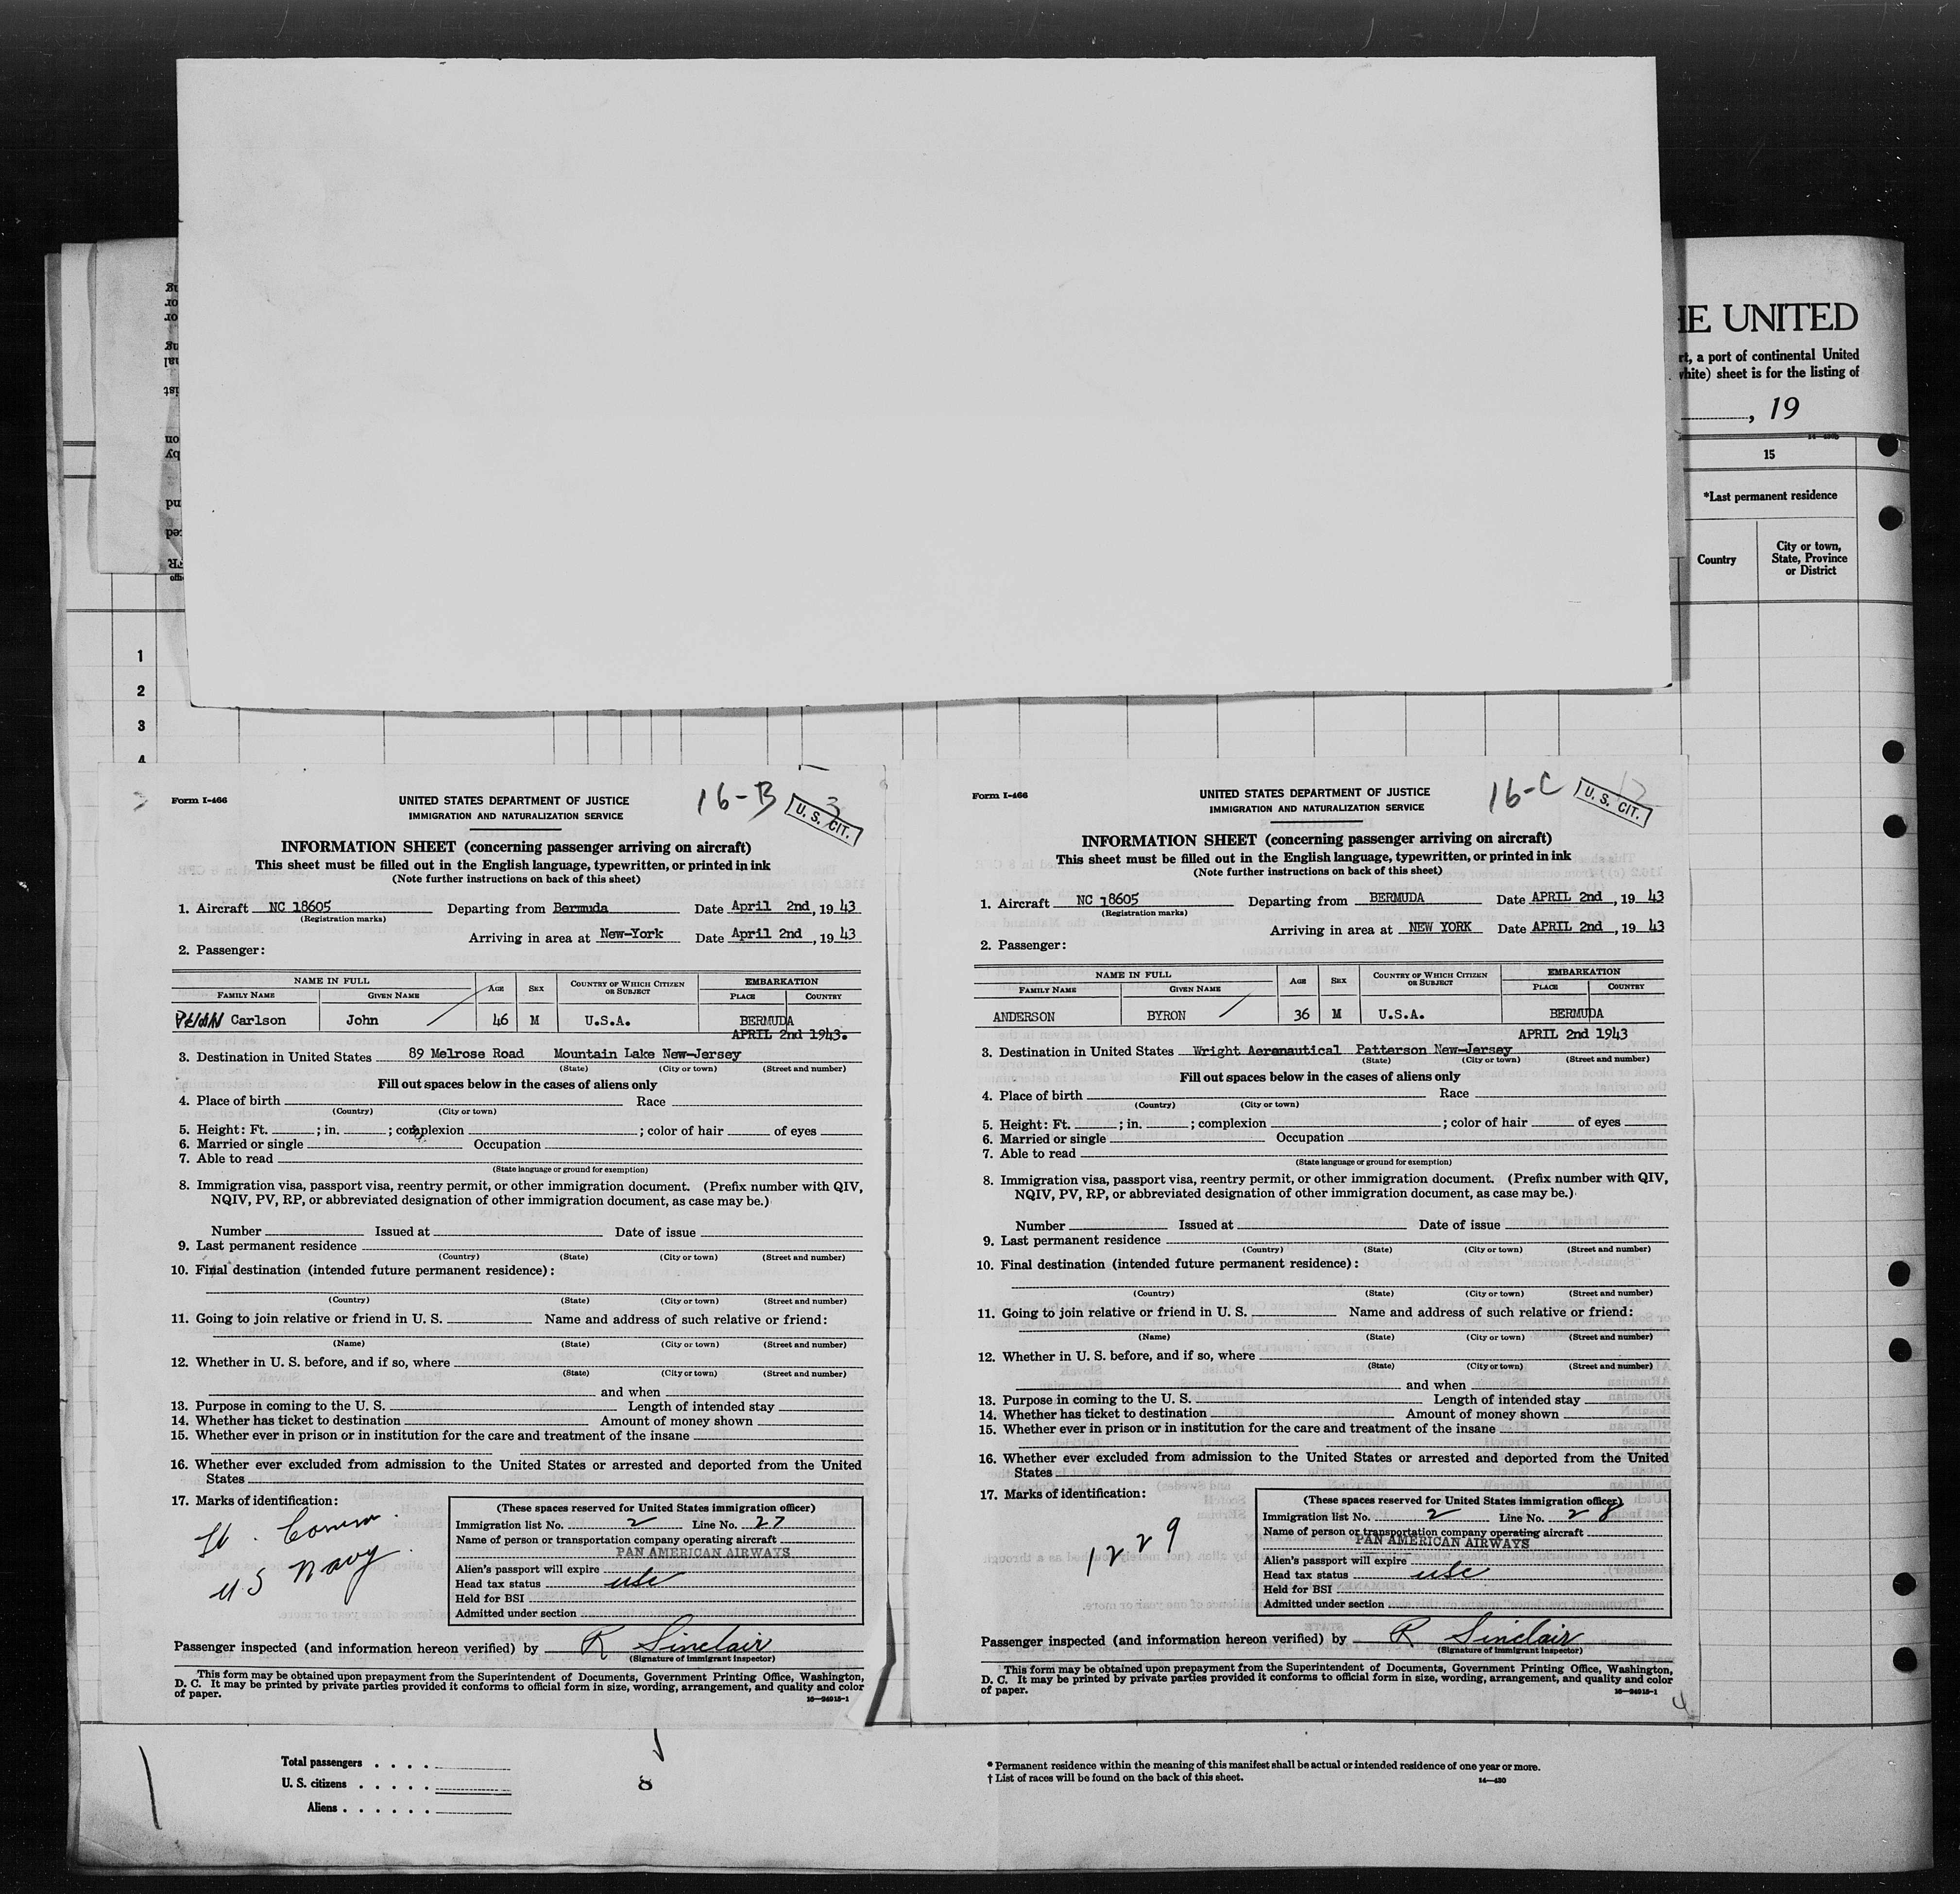 HE UNITED
rt, a port of continental United
white) sheet is for the listing of
, 19
14—430b
15
*Last permanent residence
Country
City or town,
State, Province
or District
1
2
3
4
Form I-466
UNITED STATES DEPARTMENT OF JUSTICE
IMMIGRATION AND NATURALIZATION SERVICE
16-B
3
U. S. CIT.
INFORMATION SHEET (concerning passenger arriving on aircraft)
This sheet must be filled out in the English language, typewritten, or printed in ink
(Note further instructions on back of this sheet)
1. Aircraft NC 18605 Departing from Bermuda Date April 2nd, 19 43
(Registration marks)
Arriving in area at New-York Date April 2nd, 19 43
2. Passenger:
NAME IN FULL AGE SEX COUNTRY OF WHICH CITIZEN OR SUBJECT EMBARKATION
FAMILY NAME GIVEN NAME PLACE COUNTRY
Carlson John 46 M U.S.A. BERMUDA
APRIL 2nd 1943.
3. Destination in United States 89 Melrose Road Mountain Lake New-Jersey
(State) (City or town) (Street and number)
Fill out spaces below in the cases of aliens only
4. Place of birth Race
(Country) (City or town)
5. Height: Ft. ; in. ; complexion ; color of hair of eyes
6. Married or single Occupation
7. Able to read
(State language or ground for exemption)
8. Immigration visa, passport visa, reentry permit, or other immigration document. (Prefix number with QIV,
NQIV, PV, RP, or abbreviated designation of other immigration document, as case may be.)
Number Issued at Date of issue
9. Last permanent residence
(Country) (State) (City or town) (Street and number)
10. Final destination (intended future permanent residence):
(Country) (State) (City or town) (Street and number)
11. Going to join relative or friend in U. S. Name and address of such relative or friend:
(Name) (State) (City or town) (Street and number)
12. Whether in U. S. before, and if so, where
(State) (City or town) (Street and number)
and when
13. Purpose in coming to the U. S. Length of intended stay
14. Whether has ticket to destination Amount of money shown
15. Whether ever in prison or in institution for the care and treatment of the insane
16. Whether ever excluded from admission to the United States or arrested and deported from the United
States
17. Marks of identification:
Lt. Comm.
U S Navy.
(These spaces reserved for United States immigration officer)
Immigration list No. 2 Line No. 27
Name of person or transportation company operating aircraft
PAN AMERICAN AIRWAYS
Alien's passport will expire
Head tax status usc
Held for BSI
Admitted under section
Passenger inspected (and information hereon verified) by R Sinclair
(Signature of immigrant inspector)
This form may be obtained upon prepayment from the Superintendent of Documents, Government Printing Office, Washington,
D. C. It may be printed by private parties provided it conforms to official form in size, wording, arrangement, and quality and color
of paper.
16—24915-1
Form I-466
UNITED STATES DEPARTMENT OF JUSTICE
IMMIGRATION AND NATURALIZATION SERVICE
16-C
U. S. CIT.
INFORMATION SHEET (concerning passenger arriving on aircraft)
This sheet must be filled out in the English language, typewritten, or printed in ink
(Note further instructions on back of this sheet)
1. Aircraft NC 18605 Departing from BERMUDA Date APRIL 2nd, 19 43
(Registration marks)
Arriving in area at NEW YORK Date APRIL 2nd, 19 43
2. Passenger:
NAME IN FULL AGE SEX COUNTRY OF WHICH CITIZEN OR SUBJECT EMBARKATION
FAMILY NAME GIVEN NAME PLACE COUNTRY
ANDERSON BYRON 36 M U.S.A. BERMUDA
APRIL 2nd 1943
3. Destination in United States Wright Aeronautical Patterson New-Jersey
(State) (City or town) (Street and number)
Fill out spaces below in the cases of aliens only
4. Place of birth Race
(Country) (City or town)
5. Height: Ft. ; in. ; complexion ; color of hair of eyes
6. Married or single Occupation
7. Able to read
(State language or ground for exemption)
8. Immigration visa, passport visa, reentry permit, or other immigration document. (Prefix number with QIV,
NQIV, PV, RP, or abbreviated designation of other immigration document, as case may be.)
Number Issued at Date of issue
9. Last permanent residence
(Country) (State) (City or town) (Street and number)
10. Final destination (intended future permanent residence):
(Country) (State) (City or town) (Street and number)
11. Going to join relative or friend in U. S. Name and address of such relative or friend:
(Name) (State) (City or town) (Street and number)
12. Whether in U. S. before, and if so, where
(State) (City or town) (Street and number)
and when
13. Purpose in coming to the U. S. Length of intended stay
14. Whether has ticket to destination Amount of money shown
15. Whether ever in prison or in institution for the care and treatment of the insane
16. Whether ever excluded from admission to the United States or arrested and deported from the United
States
17. Marks of identification:
1229
(These spaces reserved for United States immigration officer)
Immigration list No. 2 Line No. 28
Name of person or transportation company operating aircraft
PAN AMERICAN AIRWAYS
Alien's passport will expire
Head tax status usc
Held for BSI
Admitted under section
Passenger inspected (and information hereon verified) by R Sinclair
(Signature of immigrant inspector)
This form may be obtained upon prepayment from the Superintendent of Documents, Government Printing Office, Washington,
D. C. It may be printed by private parties provided it conforms to official form in size, wording, arrangement, and quality and color
of paper.
16—24915-1
4
Total passengers
U. S. citizens
Aliens
8
* Permanent residence within the meaning of this manifest shall be actual or intended residence of one year or more.
† List of races will be found on the back of this sheet.
14—430